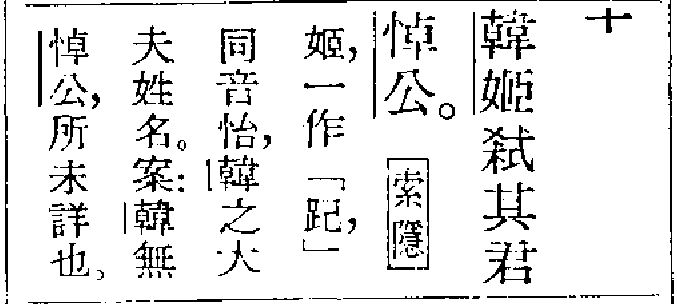 十
韓姬弒其君
悼公。索隱
姬,一作「」,
同音怡,韓之大
夫姓名。案:韓無
悼公,所未詳也。